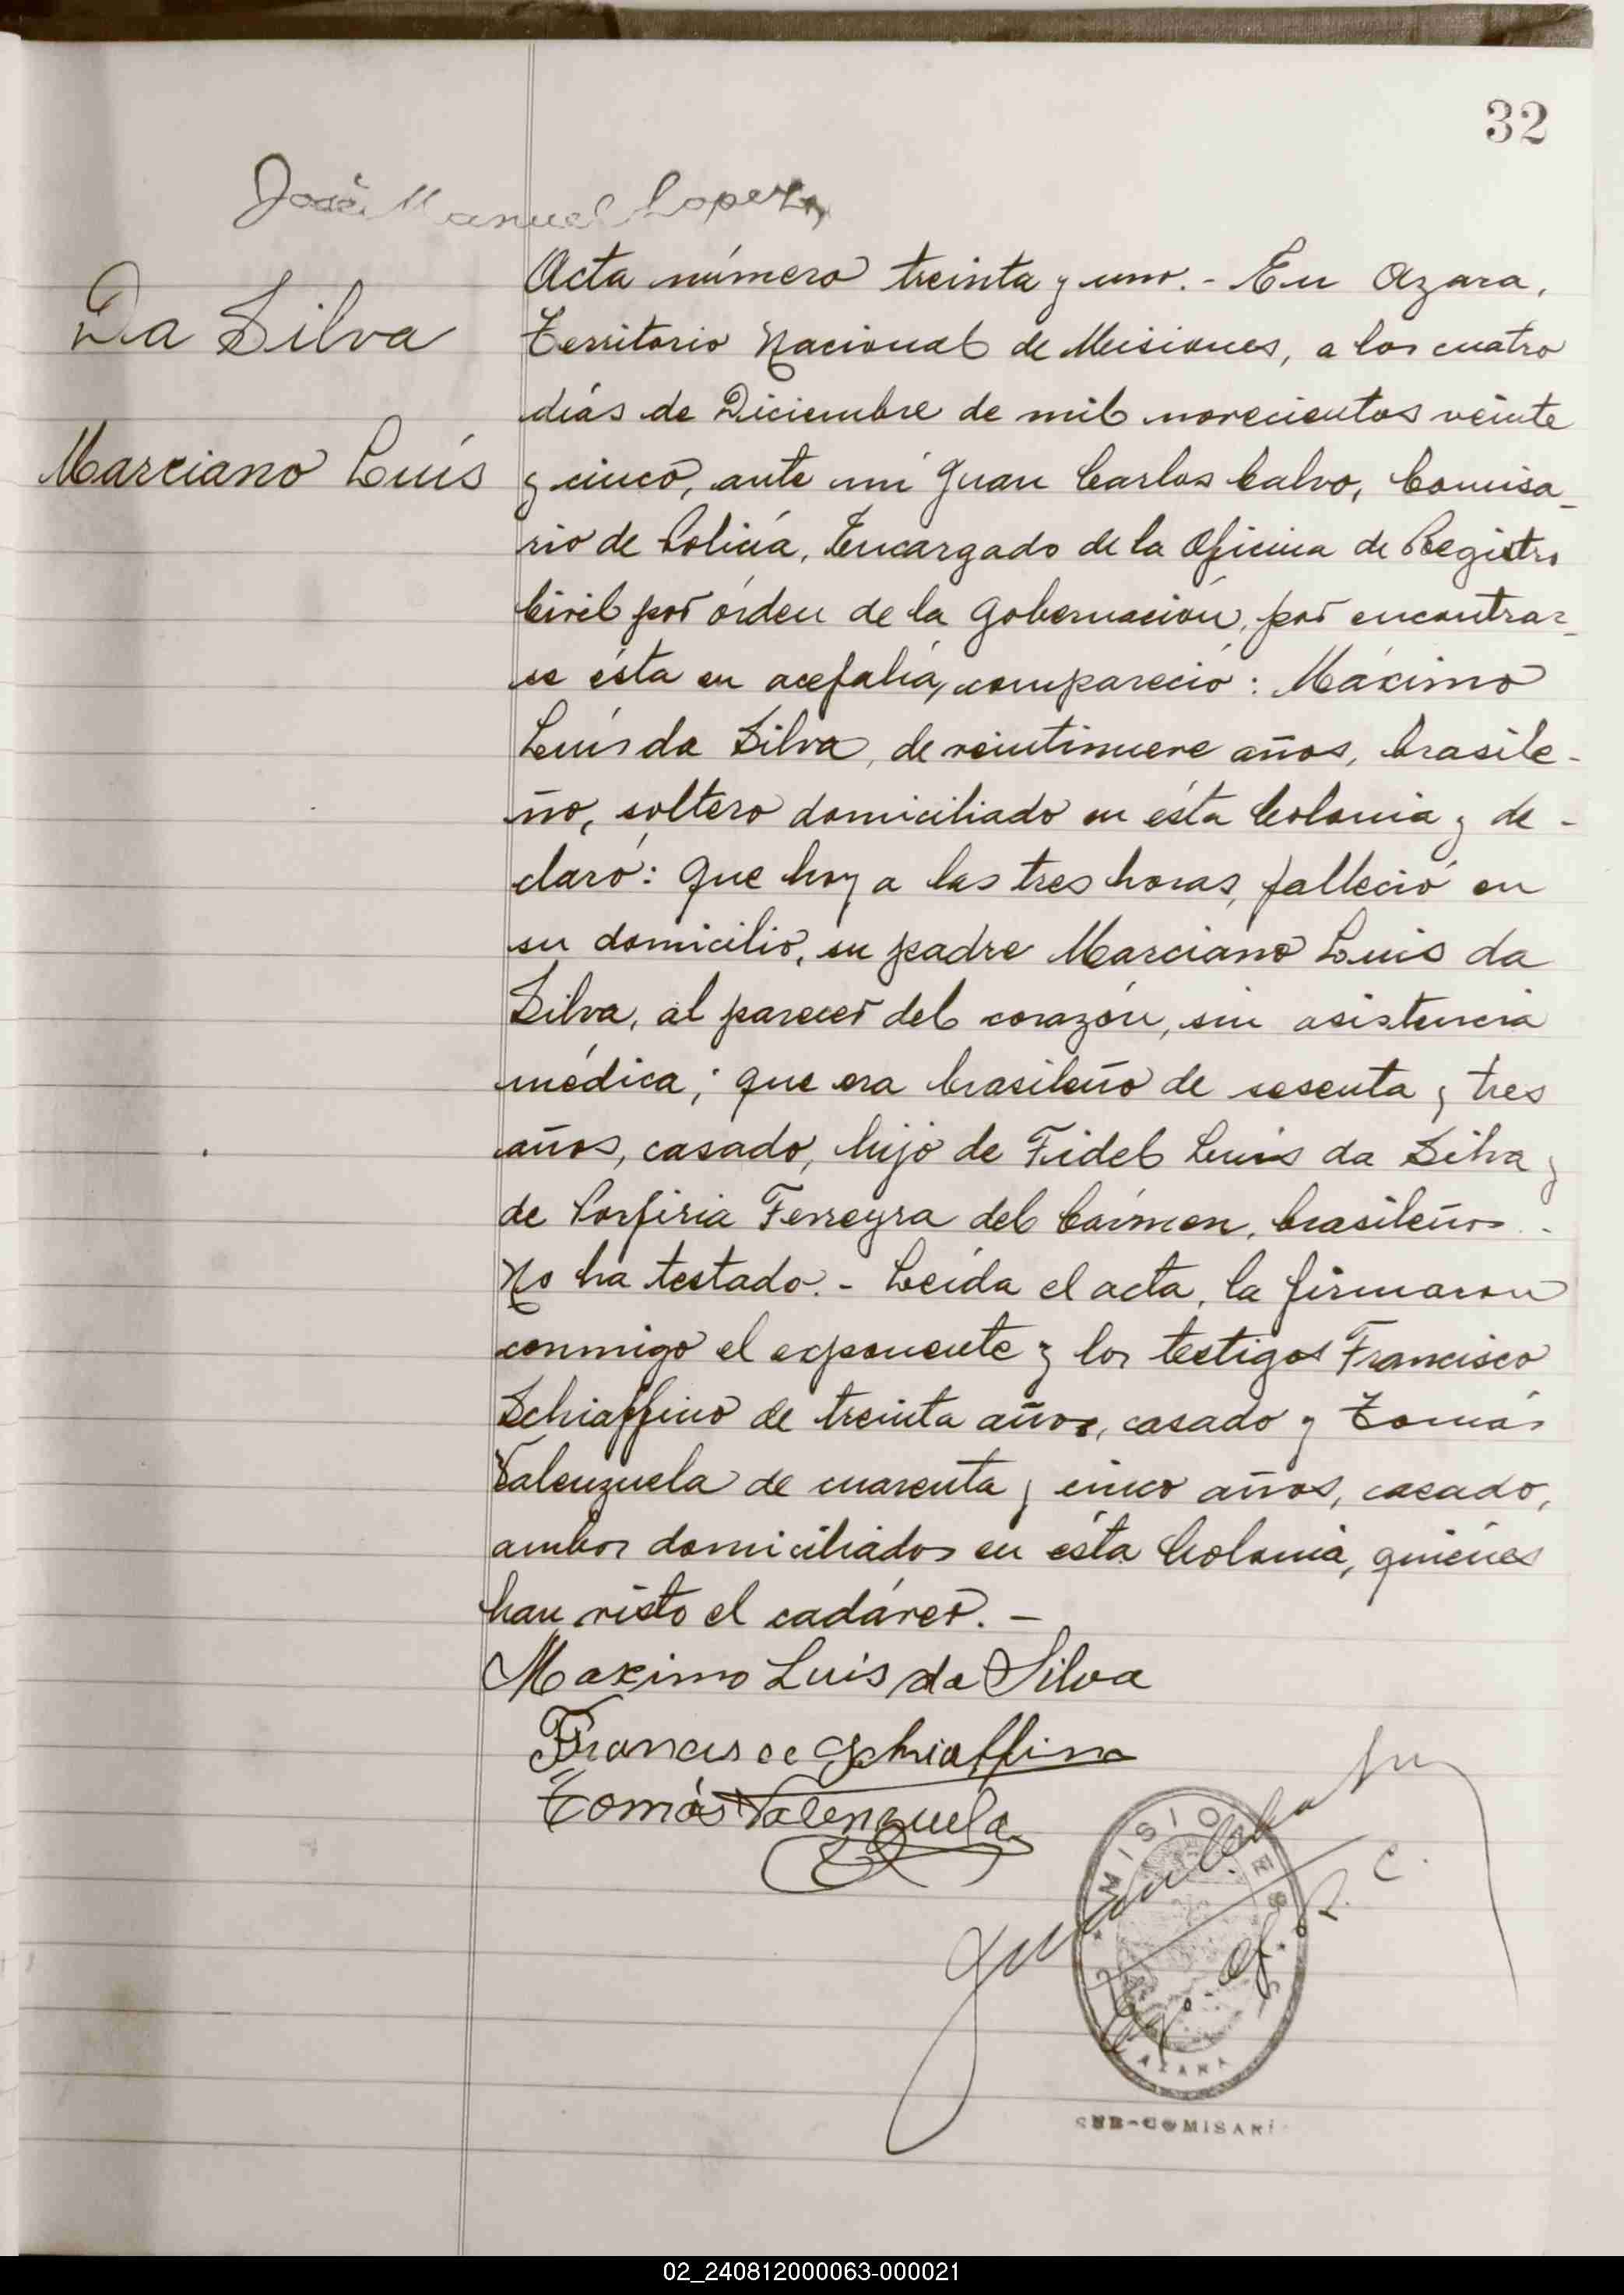 32
José Manuel Lopez
Da Silva
Marciano Luís
Acta número treinta y uno. - En Azara,
Territorio Nacional de Misiones, a los cuatro
días de Diciembre de mil novecientos veinte
y cinco, ante mí Juan Carlos Calvo, Comisa-
rio de Policía, Encargado de la Oficina de Registro
Civil por órden de la Gobernación, por encontrar-
se ésta en acefalía, compareció: Máximo
Luís da Silva, de veintinueve años, brasile-
ño, soltero domiciliado en ésta Colonia y de-
claró: Que hoy a las tres horas, falleció en
su domicilio, su padre Marciano Luis da
Silva, al parecer del corazón, sin asistencia
médica; que era brasileño de sesenta y tres
años, casado, hijo de Fidel Luis da Silva y
de Porfiria Ferreyra del Cármen, brasileños. -
No ha testado. - Leída el acta, la firmaron
conmigo el exponente y los testigos Francisco
Schiaffino de treinta años, casado y Tomás
Valenzuela de cuarenta y cinco años, casado,
ambos domiciliados en ésta Colonia, quiénes
han visto el cadáver. -
Maximo Luis da Silva
Francisco Schiaffino
Tomás Valenzuela
MISIONES
AZARA
SUB-COMISARÍ
02_240812000063-000021